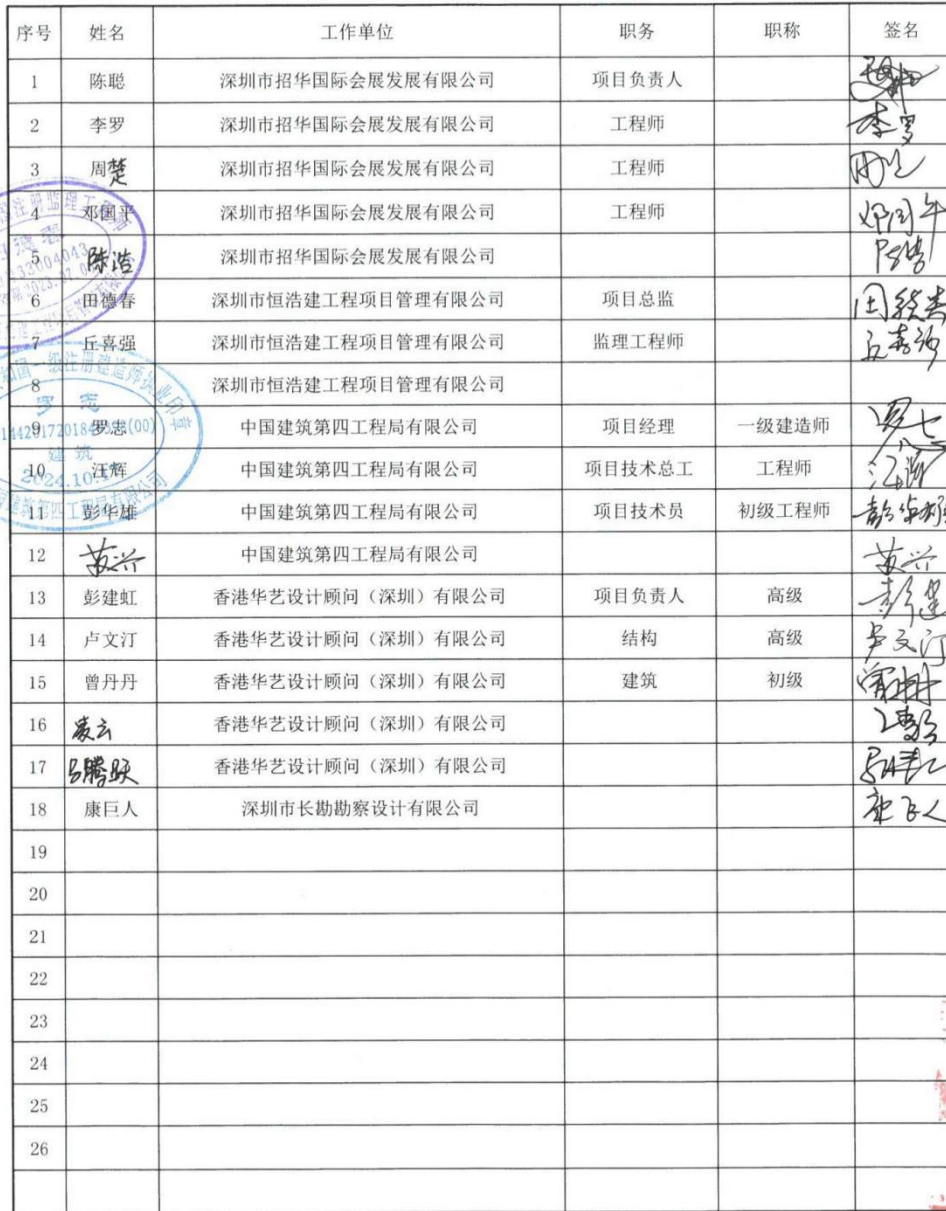 序号 姓名 工作单位 职务 职称 签名
1 陈聪 深圳市招华国际会展发展有限公司 项目负责人
2 李罗 深圳市招华国际会展发展有限公司 工程师 李罗
3 周楚 深圳市招华国际会展发展有限公司 工程师
4 邓国平 深圳市招华国际会展发展有限公司 工程师 邓国平
5 陈浩 深圳市招华国际会展发展有限公司 陈浩
6 田德春 深圳市恒浩建工程项目管理有限公司 项目总监 田德春
7 丘喜强 深圳市恒浩建工程项目管理有限公司 监理工程师 丘喜强
8 深圳市恒浩建工程项目管理有限公司
9 罗志 中国建筑第四工程局有限公司 项目经理 一级建造师 罗志
10 汪辉 中国建筑第四工程局有限公司 项目技术总工 工程师 汪辉
11 彭华雄 中国建筑第四工程局有限公司 项目技术员 初级工程师 彭华雄
12 黄兴 中国建筑第四工程局有限公司 黄兴
13 彭建虹 香港华艺设计顾问（深圳）有限公司 项目负责人 高级 彭建
14 卢文汀 香港华艺设计顾问（深圳）有限公司 结构 高级 卢文汀
15 曾丹丹 香港华艺设计顾问（深圳）有限公司 建筑 初级 曾丹丹
16 凌云 香港华艺设计顾问（深圳）有限公司
17 吕腾跃 香港华艺设计顾问（深圳）有限公司
18 康巨人 深圳市长勘勘察设计有限公司 康巨人
19
20
21
22
23
24
25
26
注册监理工程师
一级注册建造师执业印章
罗志
建筑
2024.10